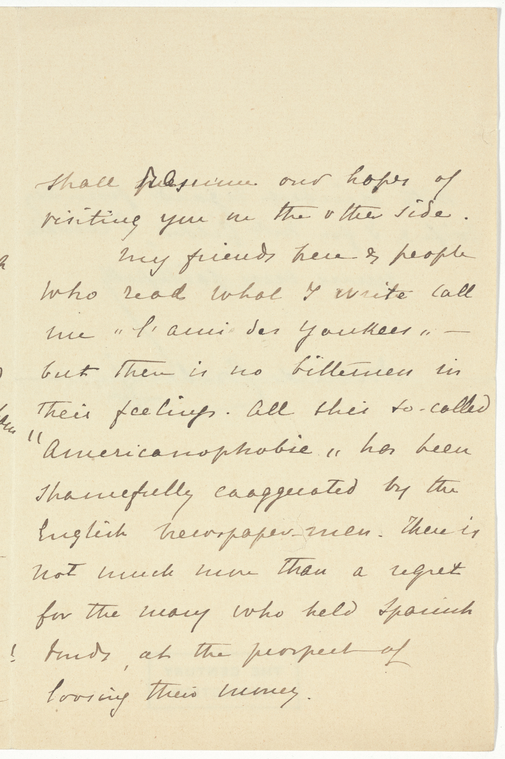 shall resume our hopes of
visiting you on the other side.
My friends here & people
who read what I write call
me "l'ami des Yankees" —
but there is no bitterness in
their feelings. All this so-called
"Americanophobie" has been
shamefully exaggerated by the
English newspaper-men. There is
not much more than a regret
for the many who held Spanish
funds, at the prospect of
loosing their money.